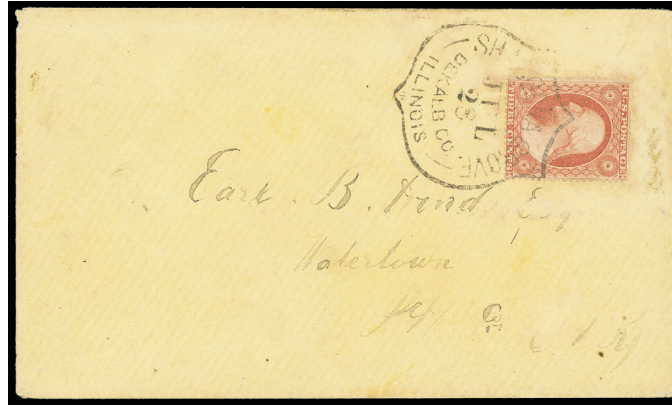 GROVE
JUL
28
DEKALB CO
ILLINOIS
U.S. POSTAGE
THREE CENTS
Earl. B. Hind, Esq
Watertown
Jeff Co.
N Y